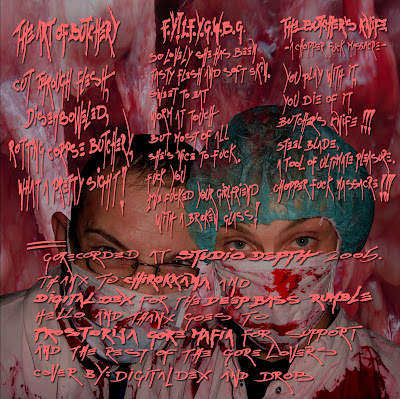 THE ART OF BUTCHERY
CUT THROUGH FLESH,
DISEMBOWELED,
ROTTING CORPSE BUTCHERY,
WHAT A PRETTY SIGHT!
F.Y!I.F.Y.G.W.B.G.
SO LOVELY SHE HAS BEEN
TASTY FLESH AND SOFT SKIN.
SWEET TO EAT
WORM AT TOUCH
BUT MOST OF ALL
SHE'S NICE TO FUCK.
FUCK YOU
I FUCKED YOUR GIRLFRIEND
WITH A BROKEN GLASS!
THE BUTCHER'S KNIFE
-A CHOPPER FUCK MASSACRE-
YOU PLAY WITH IT
YOU DIE OF IT
BUTCHER'S KNIFE!!!
STEEL BLADE,
A TOOL OF ULTIMATE PLEASURE.
CHOPPER FUCK MASSACRE!!!
GORECORDED AT STUDIO DEPTH 2006.
THANX TO CHIROKKANA AND
DIGITALDEX FOR THE DEEP BASS RUMBLE
HELLO AND THANX GOES TO
PROSTORIJA GORE MAFIA FOR SUPPORT
AND THE REST OF THE GORE LOVERS
COVER BY: DIGITALDEX AND DROB